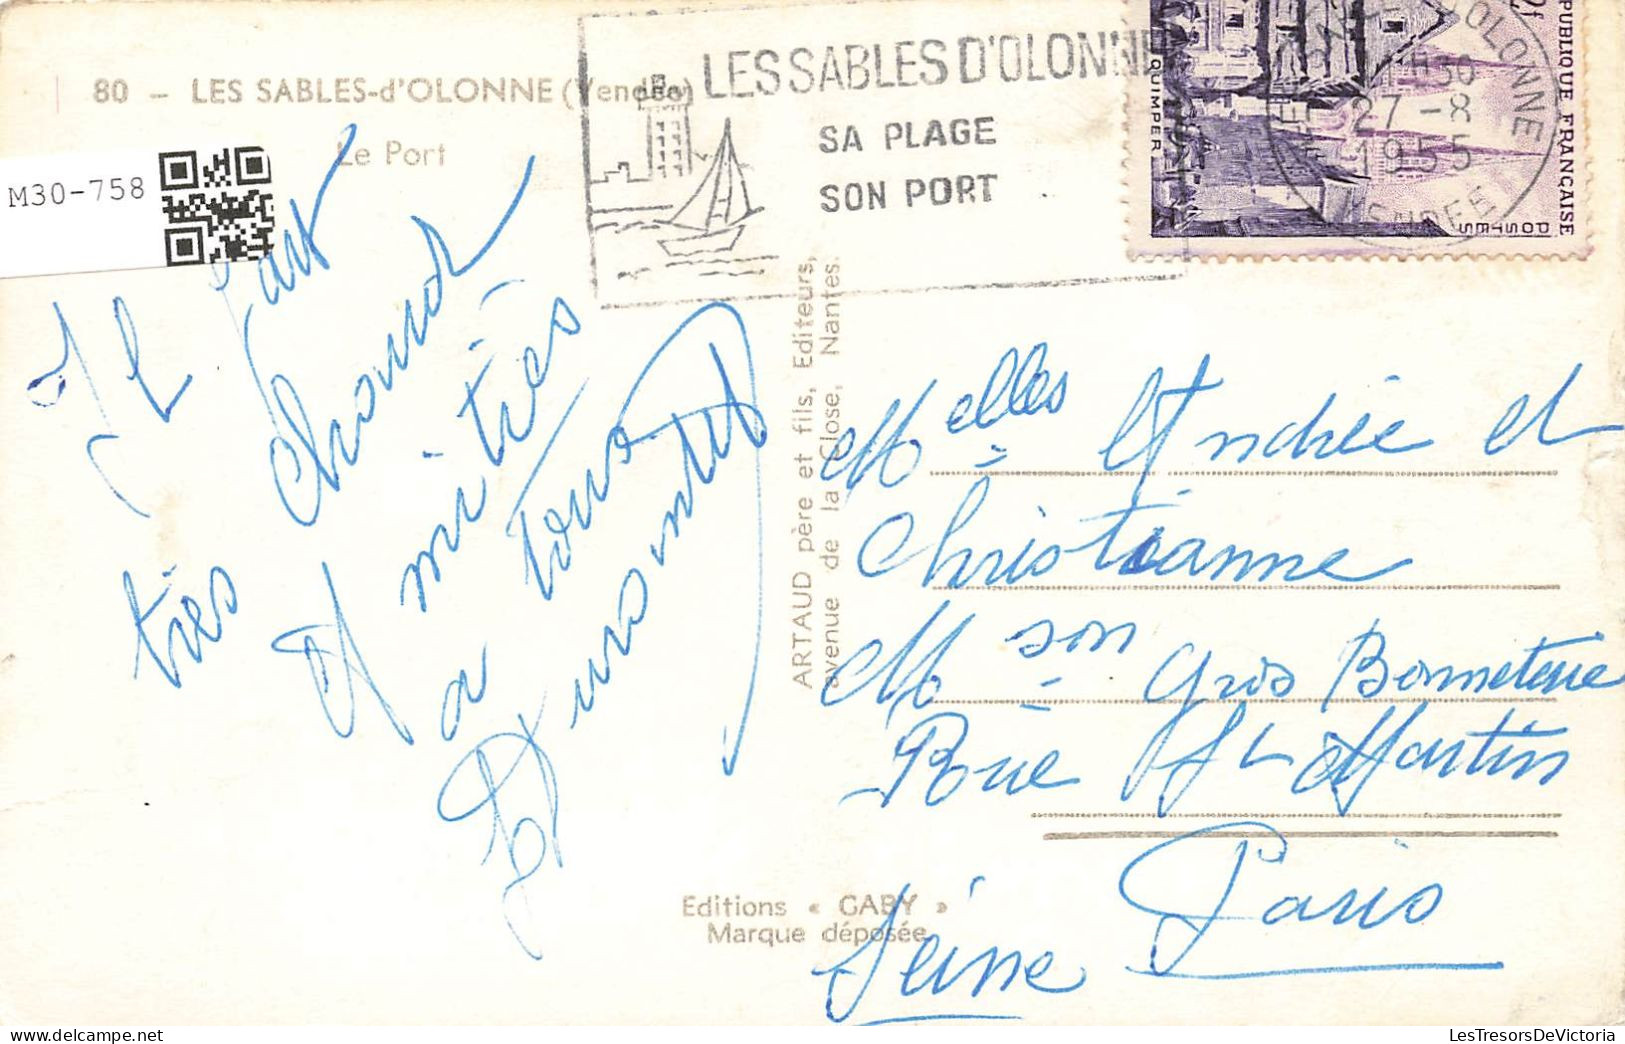 80 - LES SABLES-d'OLONNE (Vendée)
Le Port
M30-758
LES SABLES D'OLONNE
SA PLAGE
SON PORT
27 -8
1955
VENDEE
QUIMPER
POSTES
REPUBLIQUE FRANÇAISE
Il fait
très chaud
et mi très
a tous
ARTAUD père et fils, Editeurs,
avenue de la Close, Nantes.
Melles Andrée et
Christianne
Mson Gros Bonneterie
Rue St Martin
Paris
Seine
Editions « GABY »
Marque déposée
LesTresorsDeVictoria.com